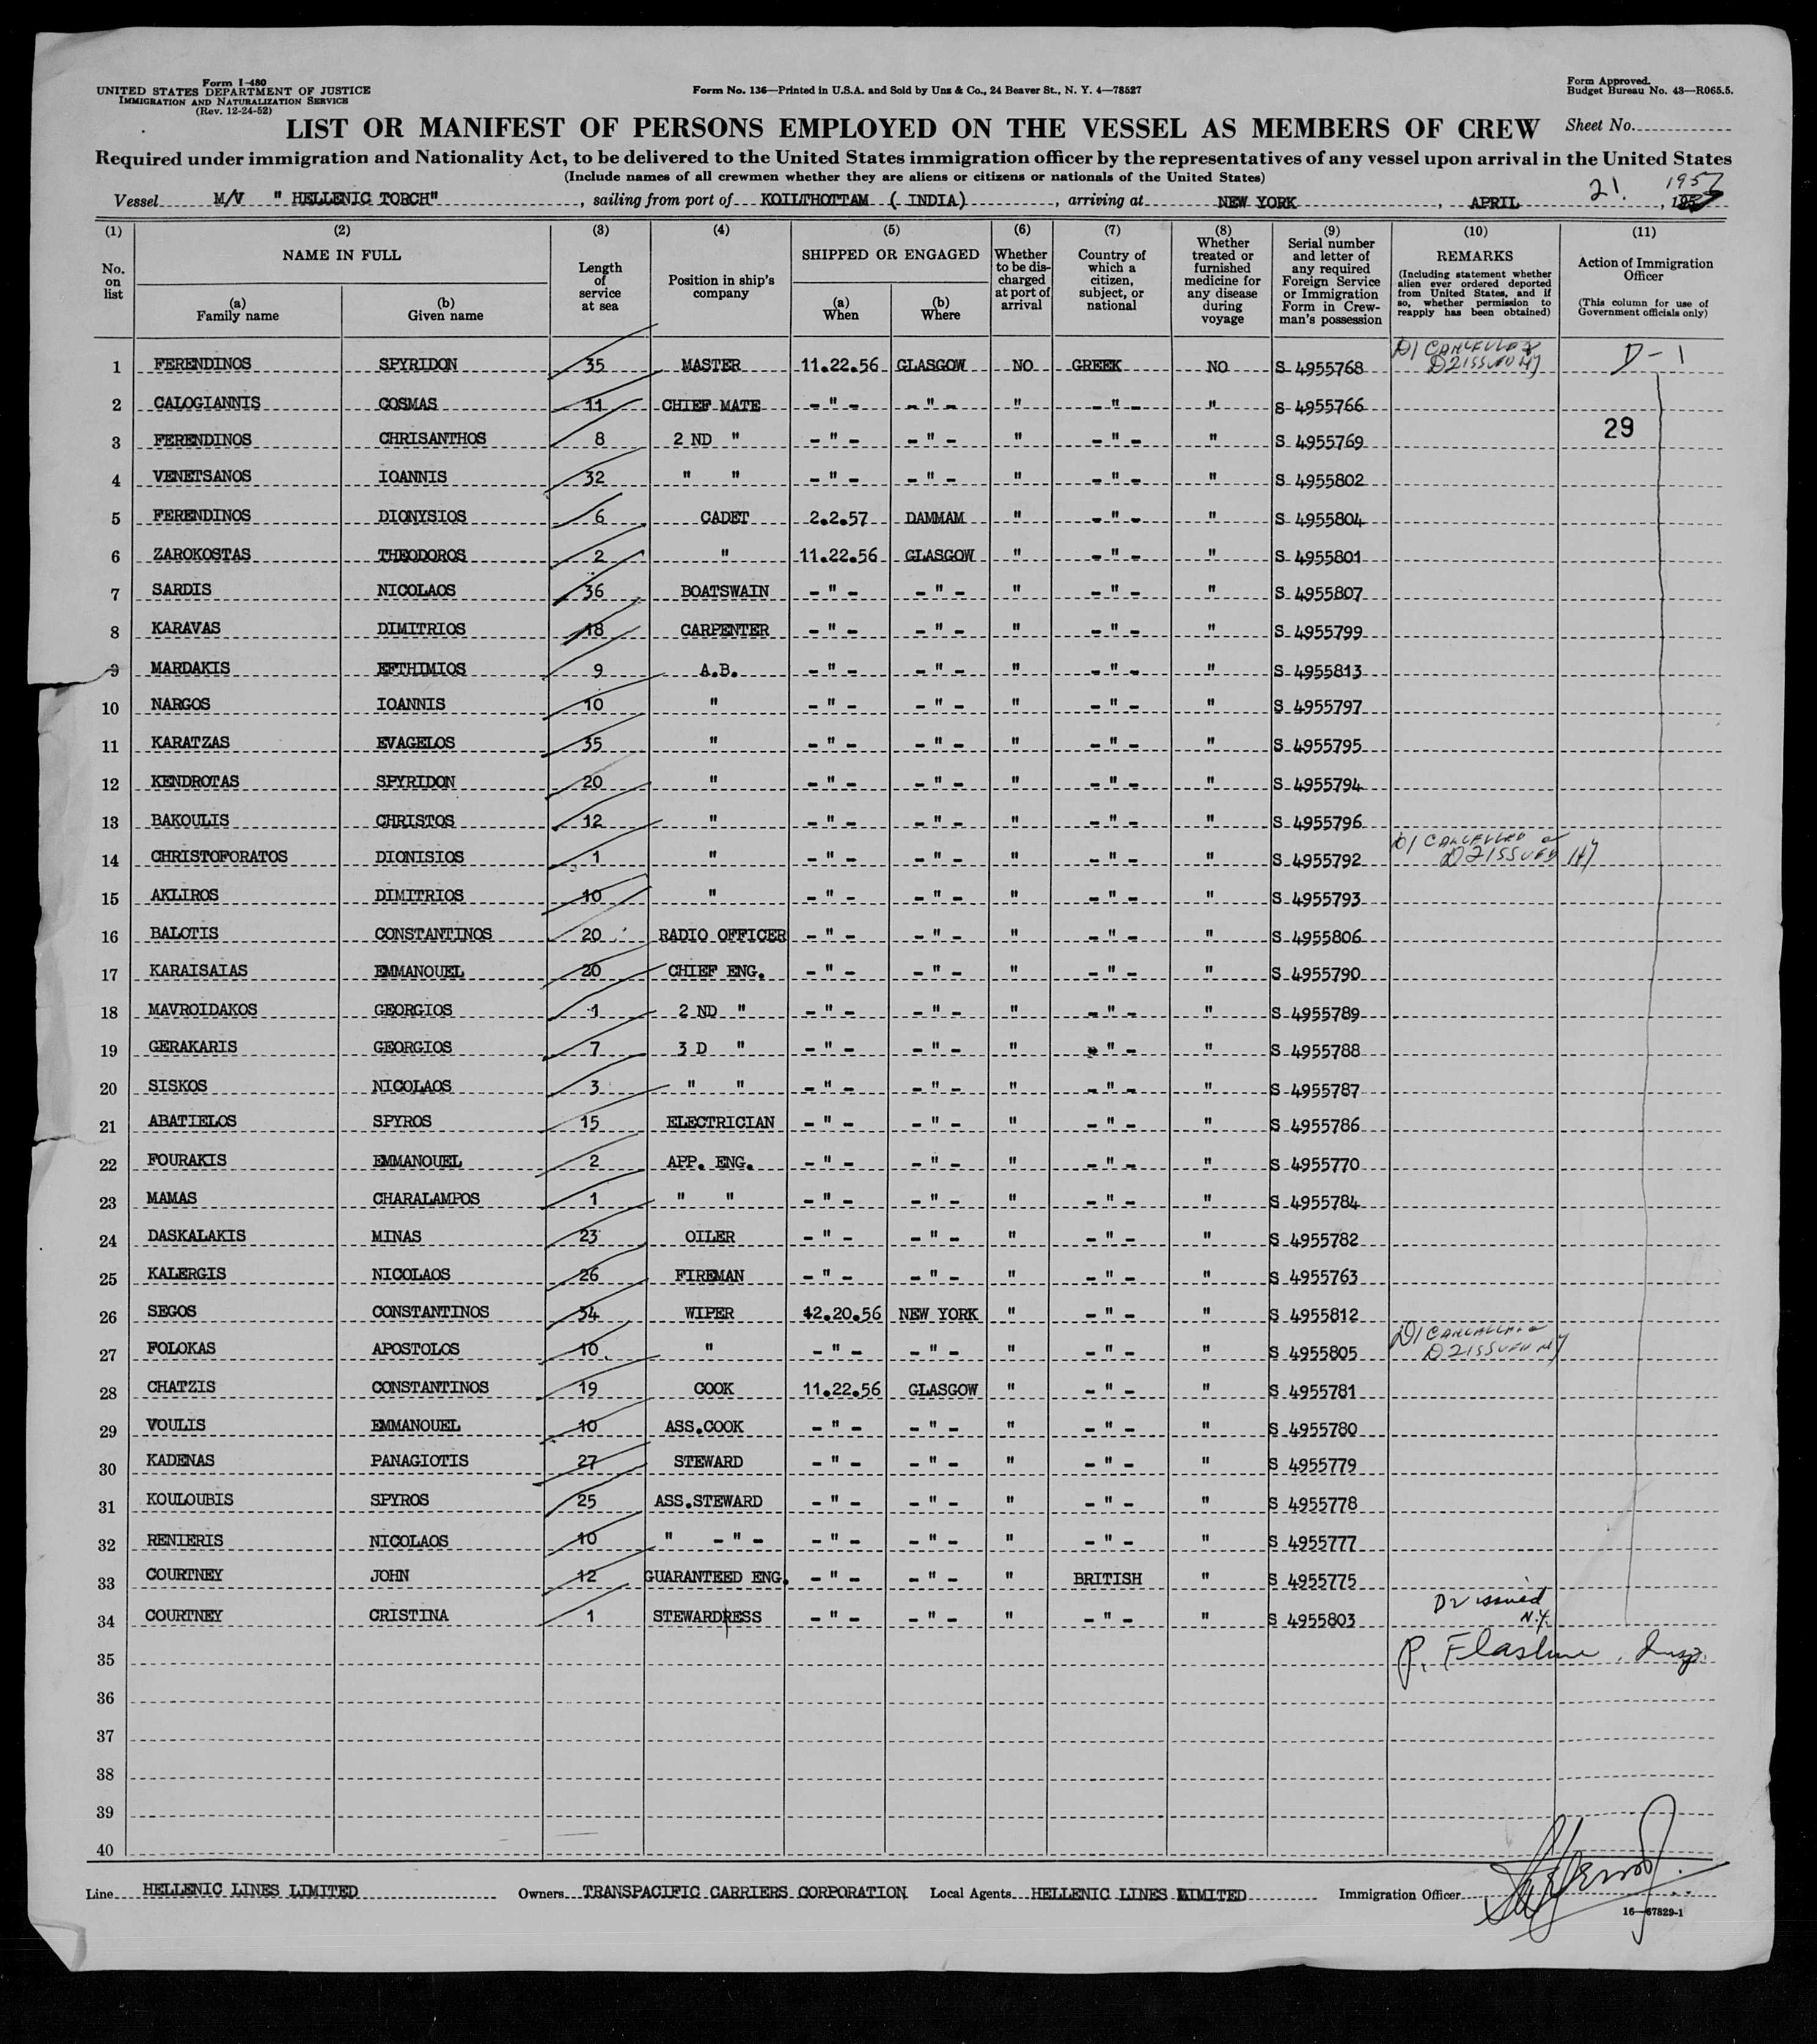 Form I-480
UNITED STATES DEPARTMENT OF JUSTICE
IMMIGRATION AND NATURALIZATION SERVICE
(Rev. 12-24-52)
Form No. 136—Printed in U.S.A. and Sold by Unz & Co., 24 Beaver St., N. Y. 4—78527
Form Approved.
Budget Bureau No. 43—R065.5.
LIST OR MANIFEST OF PERSONS EMPLOYED ON THE VESSEL AS MEMBERS OF CREW Sheet No.
Required under immigration and Nationality Act, to be delivered to the United States immigration officer by the representatives of any vessel upon arrival in the United States
(Include names of all crewmen whether they are aliens or citizens or nationals of the United States)
Vessel M/V " HELLENIC TORCH" , sailing from port of KOILTHOTTAM ( INDIA) , arriving at NEW YORK , APRIL 21 , 1957
(1) No. on list
(2) NAME IN FULL
(a) Family name
(b) Given name
(3) Length of service at sea
(4) Position in ship's company
(5) SHIPPED OR ENGAGED
(a) When
(b) Where
(6) Whether to be discharged at port of arrival
(7) Country of which a citizen, subject, or national
(8) Whether treated or furnished medicine for any disease during voyage
(9) Serial number and letter of any required Foreign Service or Immigration Form in Crewman's possession
(10) REMARKS (Including statement whether alien ever ordered deported from United States, and if so, whether permission to reapply has been obtained)
(11) Action of Immigration Officer (This column for use of Government officials only)
1 FERENDINOS SPYRIDON 35 MASTER 11.22.56 GLASGOW NO GREEK NO S 4955768 D1 CANCELLED D2 ISSUED NY D-1
2 CALOGIANNIS COSMAS 11 CHIEF MATE - " - - " - " - " - " S 4955766
3 FERENDINOS CHRISANTHOS 8 2 ND " - " - - " - " - " - " S 4955769 29
4 VENETSANOS IOANNIS 32 " " - " - - " - " - " - " S 4955802
5 FERENDINOS DIONYSIOS 6 CADET 2.2.57 DAMMAM " - " - " S 4955804
6 ZAROKOSTAS THEODOROS 2 " 11.22.56 GLASGOW " - " - " S 4955801
7 SARDIS NICOLAOS 36 BOATSWAIN - " - - " - " - " - " S 4955807
8 KARAVAS DIMITRIOS 18 CARPENTER - " - - " - " - " - " S 4955799
9 MARDAKIS EFTHIMIOS 9 A.B. - " - - " - " - " - " S 4955813
10 NARGOS IOANNIS 10 " - " - - " - " - " - " S 4955797
11 KARATZAS EVAGELOS 35 " - " - - " - " - " - " S 4955795
12 KENDROTAS SPYRIDON 20 " - " - - " - " - " - " S 4955794
13 BAKOULIS CHRISTOS 12 " - " - - " - " - " - " S 4955796
14 CHRISTOFORATOS DIONISIOS 1 " - " - - " - " - " - " S 4955792 D1 CANCELLED D2 ISSUED NY
15 AKLIROS DIMITRIOS 10 " - " - - " - " - " - " S 4955793
16 BALOTIS CONSTANTINOS 20 RADIO OFFICER - " - - " - " - " - " S 4955806
17 KARAISAIAS EMMANOUEL 20 CHIEF ENG. - " - - " - " - " - " S 4955790
18 MAVROIDAKOS GEORGIOS 1 2 ND " - " - - " - " - " - " S 4955789
19 GERAKARIS GEORGIOS 7 3 D " - " - - " - " - " - " S 4955788
20 SISKOS NICOLAOS 3 " " - " - - " - " - " - " S 4955787
21 ABATIELOS SPYROS 15 ELECTRICIAN - " - - " - " - " - " S 4955786
22 FOURAKIS EMMANOUEL 2 APP. ENG. - " - - " - " - " - " S 4955770
23 MAMAS CHARALAMPOS 1 " " - " - - " - " - " - " S 4955784
24 DASKALAKIS MINAS 23 OILER - " - - " - " - " - " S 4955782
25 KALERGIS NICOLAOS 26 FIREMAN - " - - " - " - " - " S 4955763
26 SEGOS CONSTANTINOS 34 WIPER 12.20.56 NEW YORK " - " - " S 4955812
27 FOLOKAS APOSTOLOS 10 " - " - - " - " - " - " S 4955805 D1 CANCELLED D2 ISSUED NY
28 CHATZIS CONSTANTINOS 19 COOK 11.22.56 GLASGOW " - " - " S 4955781
29 VOULIS EMMANOUEL 10 ASS.COOK - " - - " - " - " - " S 4955780
30 KADENAS PANAGIOTIS 27 STEWARD - " - - " - " - " - " S 4955779
31 KOULOUBIS SPYROS 25 ASS.STEWARD - " - - " - " - " - " S 4955778
32 RENIERIS NICOLAOS 10 " - " - - " - - " - " - " - " S 4955777
33 COURTNEY JOHN 12 GUARANTEED ENG. - " - - " - " BRITISH " S 4955775
34 COURTNEY CRISTINA 1 STEWARDRESS - " - - " - " - " - " S 4955803 D2 issued N.Y.
35 P. Flashure, Insp.
36
37
38
39
40
Line HELLENIC LINES LIMITED Owners TRANSPACIFIC CARRIERS CORPORATION Local Agents HELLENIC LINES LIMITED Immigration Officer
16—67829-1